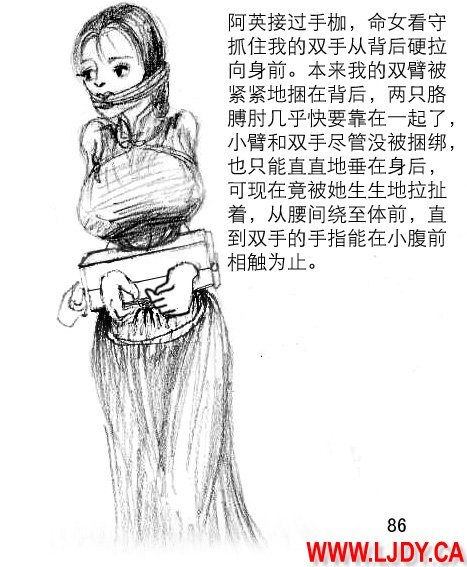 阿英接过手枷，命女看守
抓住我的双手从背后硬拉
向身前。本来我的双臂被
紧紧地捆在背后，两只胳
膊肘几乎快要靠在一起了，
小臂和双手尽管没被捆绑，
也只能直直地垂在身后，
可现在竟被她生生地拉扯
着，从腰间绕至体前，直
到双手的手指能在小腹前
相触为止。
86
WWW.LJDY.CA